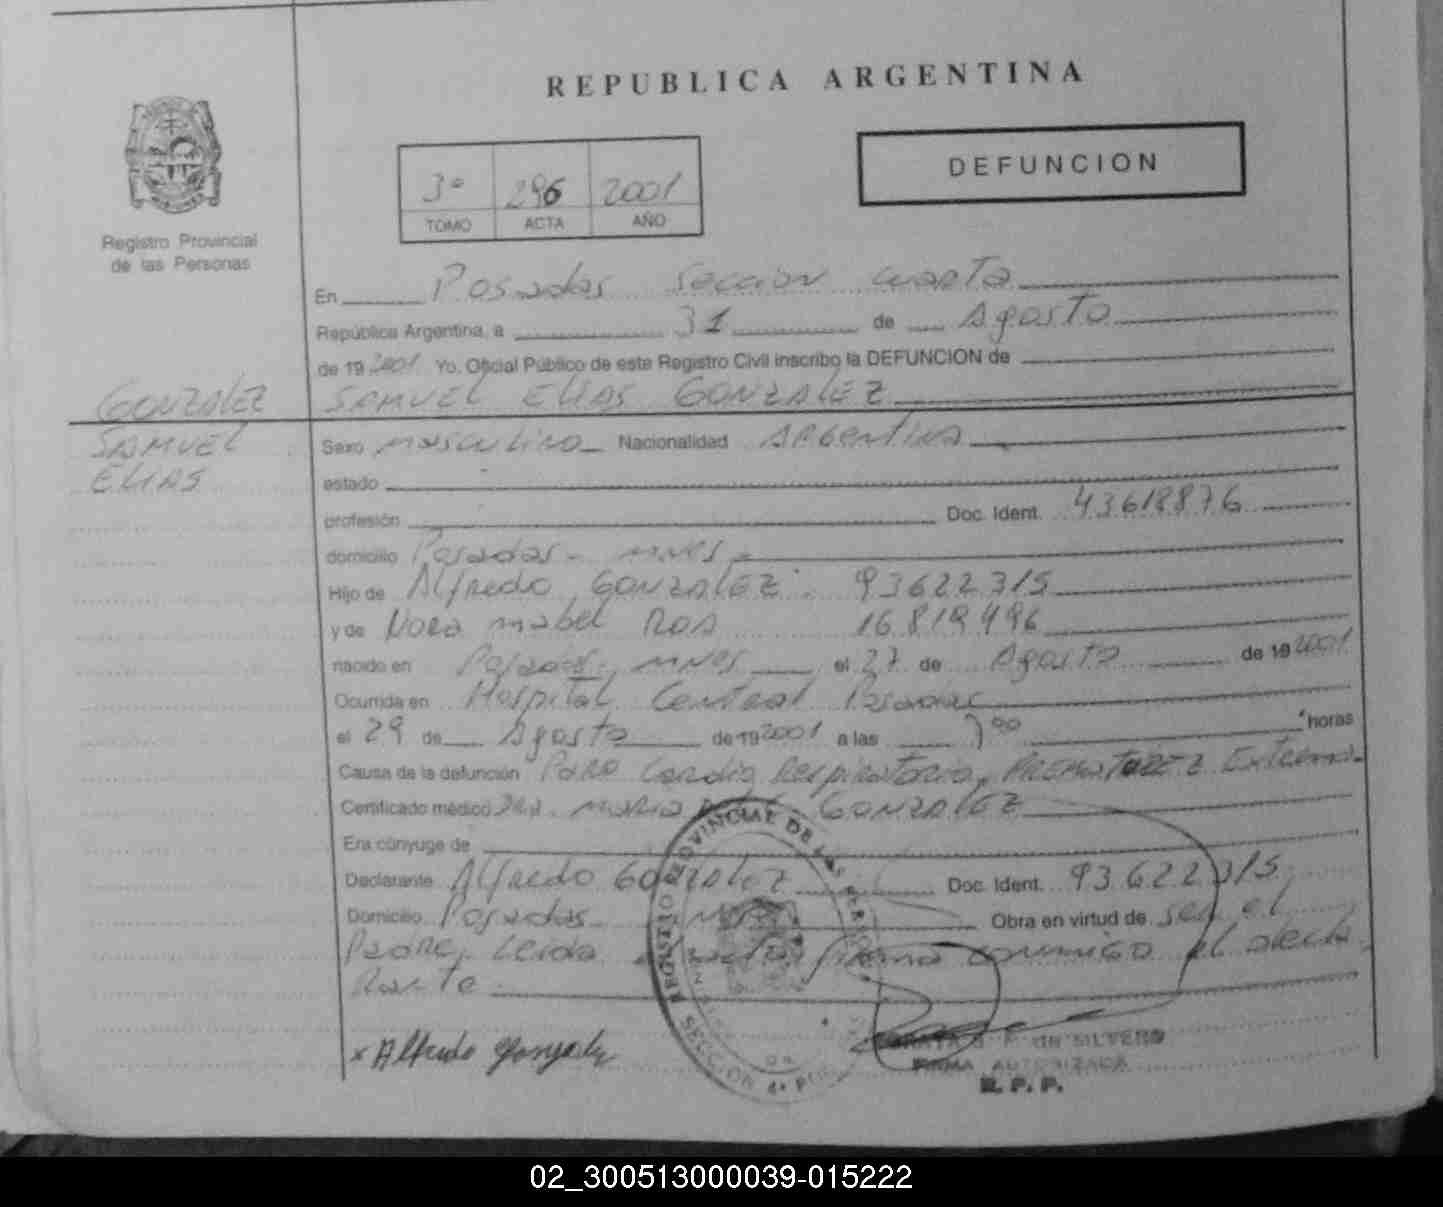 REPUBLICA ARGENTINA
DEFUNCION
3º 296 2001
TOMO ACTA AÑO
Registro Provincial
de las Personas
En Posadas Sección cuarta
República Argentina, a 31 de Agosto
de 19 2001 Yo, Oficial Público de este Registro Civil inscribo la DEFUNCION de
GONZALEZ SAMUEL ELIAS GONZALEZ
SAMUEL
ELIAS
Sexo masculino Nacionalidad Argentina
estado
profesión Doc. Ident. 43618876
domicilio Posadas - mnes
Hijo de Alfredo GONZALEZ 93622315
y de Nora mabel Ros 16.819.496
nacido en Posadas, mnes el 27 de Agosto de 19 2001
Ocurrida en Hospital Central Posadas
el 29 de Agosto de 19 2001 a las 7 00 horas
Causa de la defunción Paro Cardio Respiratorio, PREMATUREZ Extrema.
Certificado médico Dra. Maria GONZALEZ
Era cónyuge de
Declarante Alfredo GONZALEZ Doc. Ident. 93.622.315
Domicilio Posadas Obra en virtud de ser el
Padre, Leida el acta firma conmigo el decla
Rante
x Alfredo Gonzalez
REGISTRO PROVINCIAL DE LAS PERSONAS
SECCION 4ª
DE SILVERO
FIRMA AUTORIZADA
R. P. P.
02_300513000039-015222